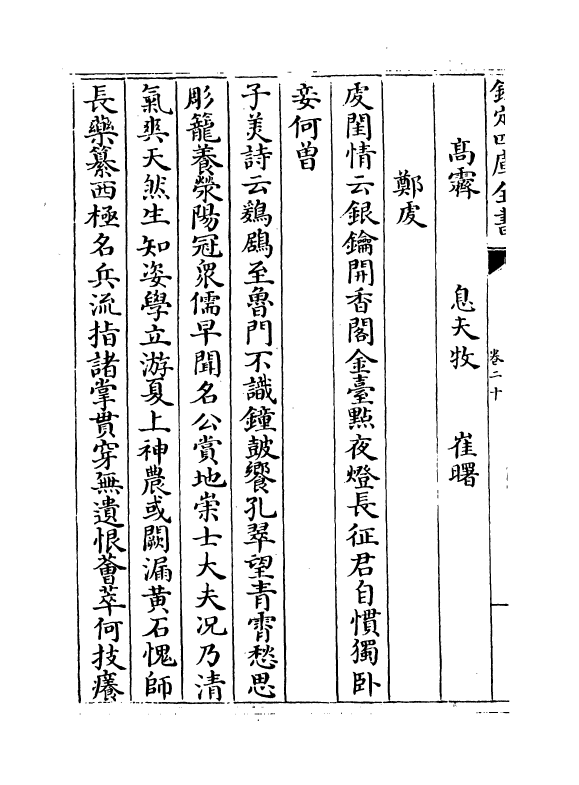 欽定四庫全書
卷二十
高霽　息夫牧　崔曙
鄭虔
虔閨情云銀鑰開香閣金臺點夜燈長征君自慣獨卧
妾何曾
子美詩云鷄鶋至魯門不識鐘鼓饗孔翠望青霄愁思
彫籠養滎陽冠衆儒早聞名公賞地崇士大夫况乃清
氣爽天然生知姿學立游夏上神農或闕漏黄石愧師
長藥纂西極名兵流指諸掌貫穿無遺恨薈萃何技癢